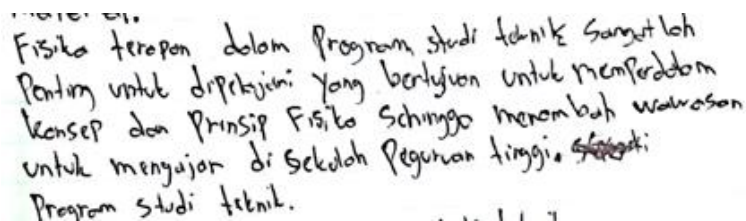 Materi.
Fisika terapan dalam Program studi teknik sangatlah
Penting untuk dipelajari yang bertujuan untuk memperdalam
konsep dan Prinsip Fisika Sehingga menambah wawasan
untuk mengajar di Sekolah Peguruan tinggi.
Program studi teknik.